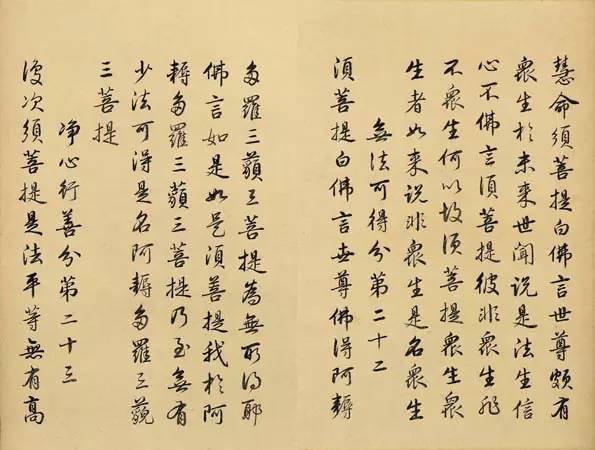 慧命須菩提白佛言世尊頗有
衆生於未來世聞説是法生信
心不佛言須菩提彼非衆生非
不衆生何以故須菩提衆生衆
生者如来説非衆生是名衆生
無法可得分第二十二
須菩提白佛言世尊佛得阿耨
多羅三藐三菩提為無所得耶
佛言如是如是須菩提我於阿
耨多羅三藐三菩提乃至無有
少法可得是名阿耨多羅三藐
三菩提
净心行善分第二十三
復次須菩提是法平等無有高